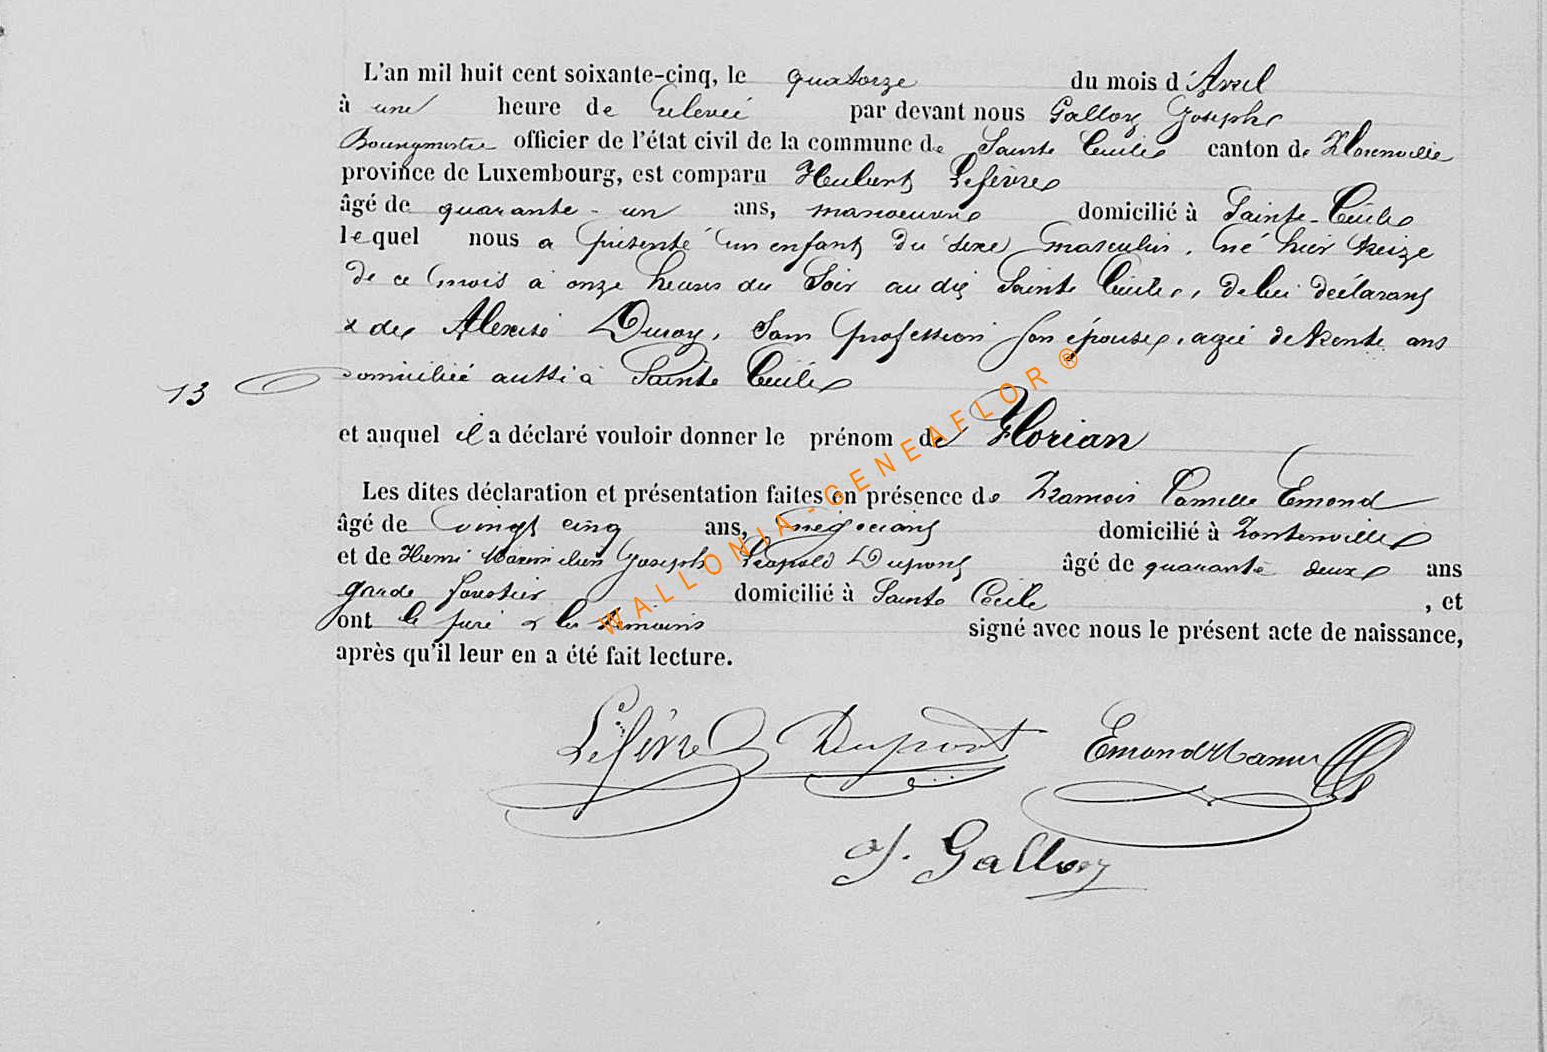 L'an mil huit cent soixante-cinq, le quatorze du mois d'Avril
à une heure de relevée par devant nous Galloy Joseph
Bourgmestre officier de l'état civil de la commune de Sainte Cécile canton de Florenville
province de Luxembourg, est comparu Hubert Lefèvre
âgé de quarante-un ans, manoeuvre domicilié à Sainte-Cécile
lequel nous a présenté un enfant du sexe masculin, né hier treize
de ce mois à onze heures du soir au dit Sainte Cécile, de lui déclarant
& de Duroy, sans profession son épouse, agée de trente ans
domiciliée aussi à Sainte Cécile
13
et auquel il a déclaré vouloir donner le prénom de Florian
Les dites déclaration et présentation faites en présence de François Camille Emond
âgé de vingt cinq ans, négociant domicilié à
et de Henri Maximilien Joseph Léopold Dupont âgé de quarante deux ans
garde forestier domicilié à Sainte Cécile , et
ont le père & les témoins signé avec nous le présent acte de naissance,
après qu'il leur en a été fait lecture.
Lefèvre Dupont Emond
J. Galloy
WALLONIA-GENEAFLOR ®